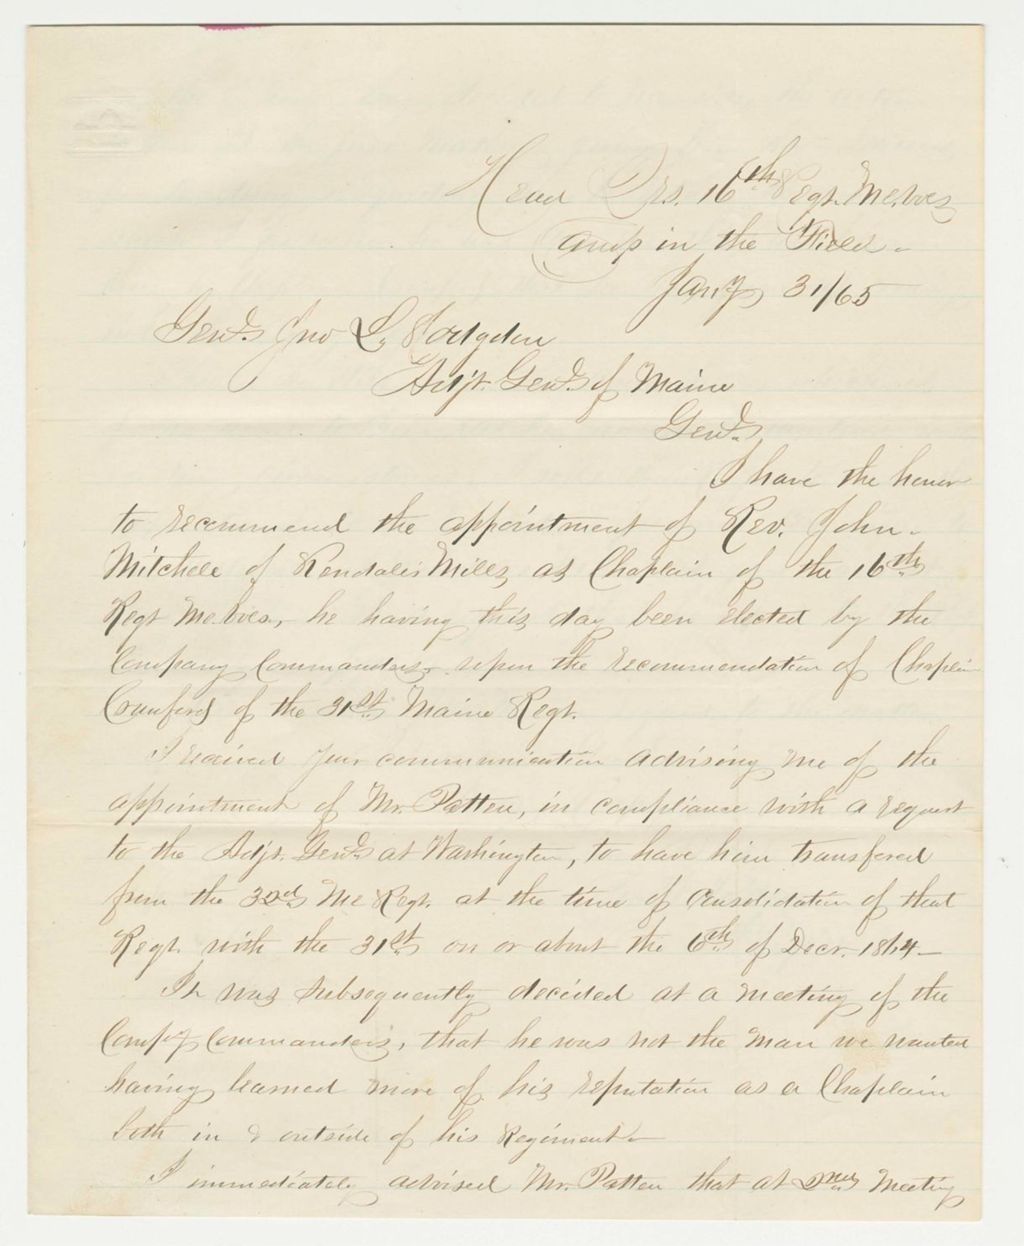 Head Qrs. 16th Regt. Me. Vols
Camp in the Field.
Jany 31/65
Genl. Jno L. Hodgdon
Adjt. Genl. of Maine
Genl.
I have the honor
to recommend the appointment of Rev. John
Mitchell of Kendalls Mills, as Chaplain of the 16th
Regt Me. Vols., he having this day been elected by the
Company Commanders, upon the recommendation of Chaplain
Crawford of the 31st Maine Regt.
I received your communication advising me of the
appointment of Mr. Patten, in compliance with a request
to the Adjt. Genl. at Washington, to have him transfered
from the 32d Me Regt. at the time of consolidation of that
Regt. with the 31st on or about the 6th of Decr. 1864
It was subsequently decided at a meeting of the
Compy Commanders, that he was not the man we wanted
having learned more of his reputation as a Chaplain
both in & outside of his Regiment
I immediately advised Mr. Patten that at meeting